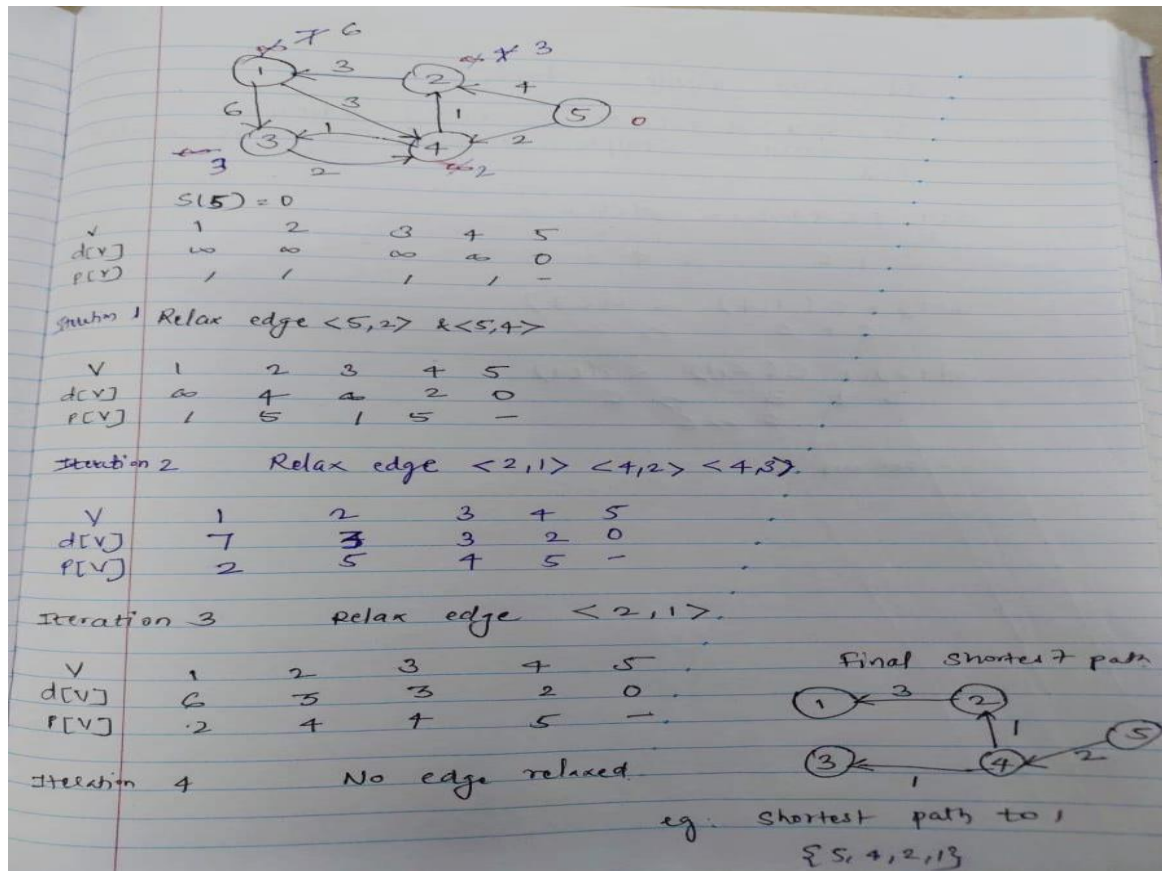 ∞ 7 6
∞ 4 3
1 3 2 4
6 3 1 5 0
3 1 4 2
∞ 3 2 ∞ 2
S(5) = 0
V 1 2 3 4 5
d[V] ∞ ∞ ∞ ∞ 0
P[V] / / / / -
1 Relax edge <5,2> &<5,4>
V 1 2 3 4 5
d[V] ∞ 4 ∞ 2 0
P[V] / 5 / 5 -
Iteration 2 Relax edge <2,1> <4,2> <4,3>.
V 1 2 3 4 5
d[V] 7 3 3 2 0
P[V] 2 5 4 5 -
Iteration 3 Relax edge <2,1>.
V 1 2 3 4 5
d[V] 6 3 3 2 0
P[V] 2 4 4 5 -
Iteration 4 No edge relaxed
Final shortest path
1 3 2
1 5
3 1 4 2
eg. Shortest path to 1
{5, 4, 2, 1}